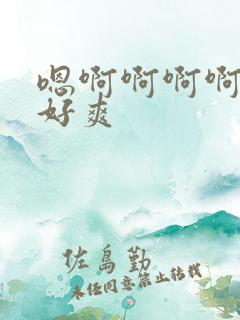 嗯啊啊啊啊
好爽
佐岛勤
未经同意禁止转载